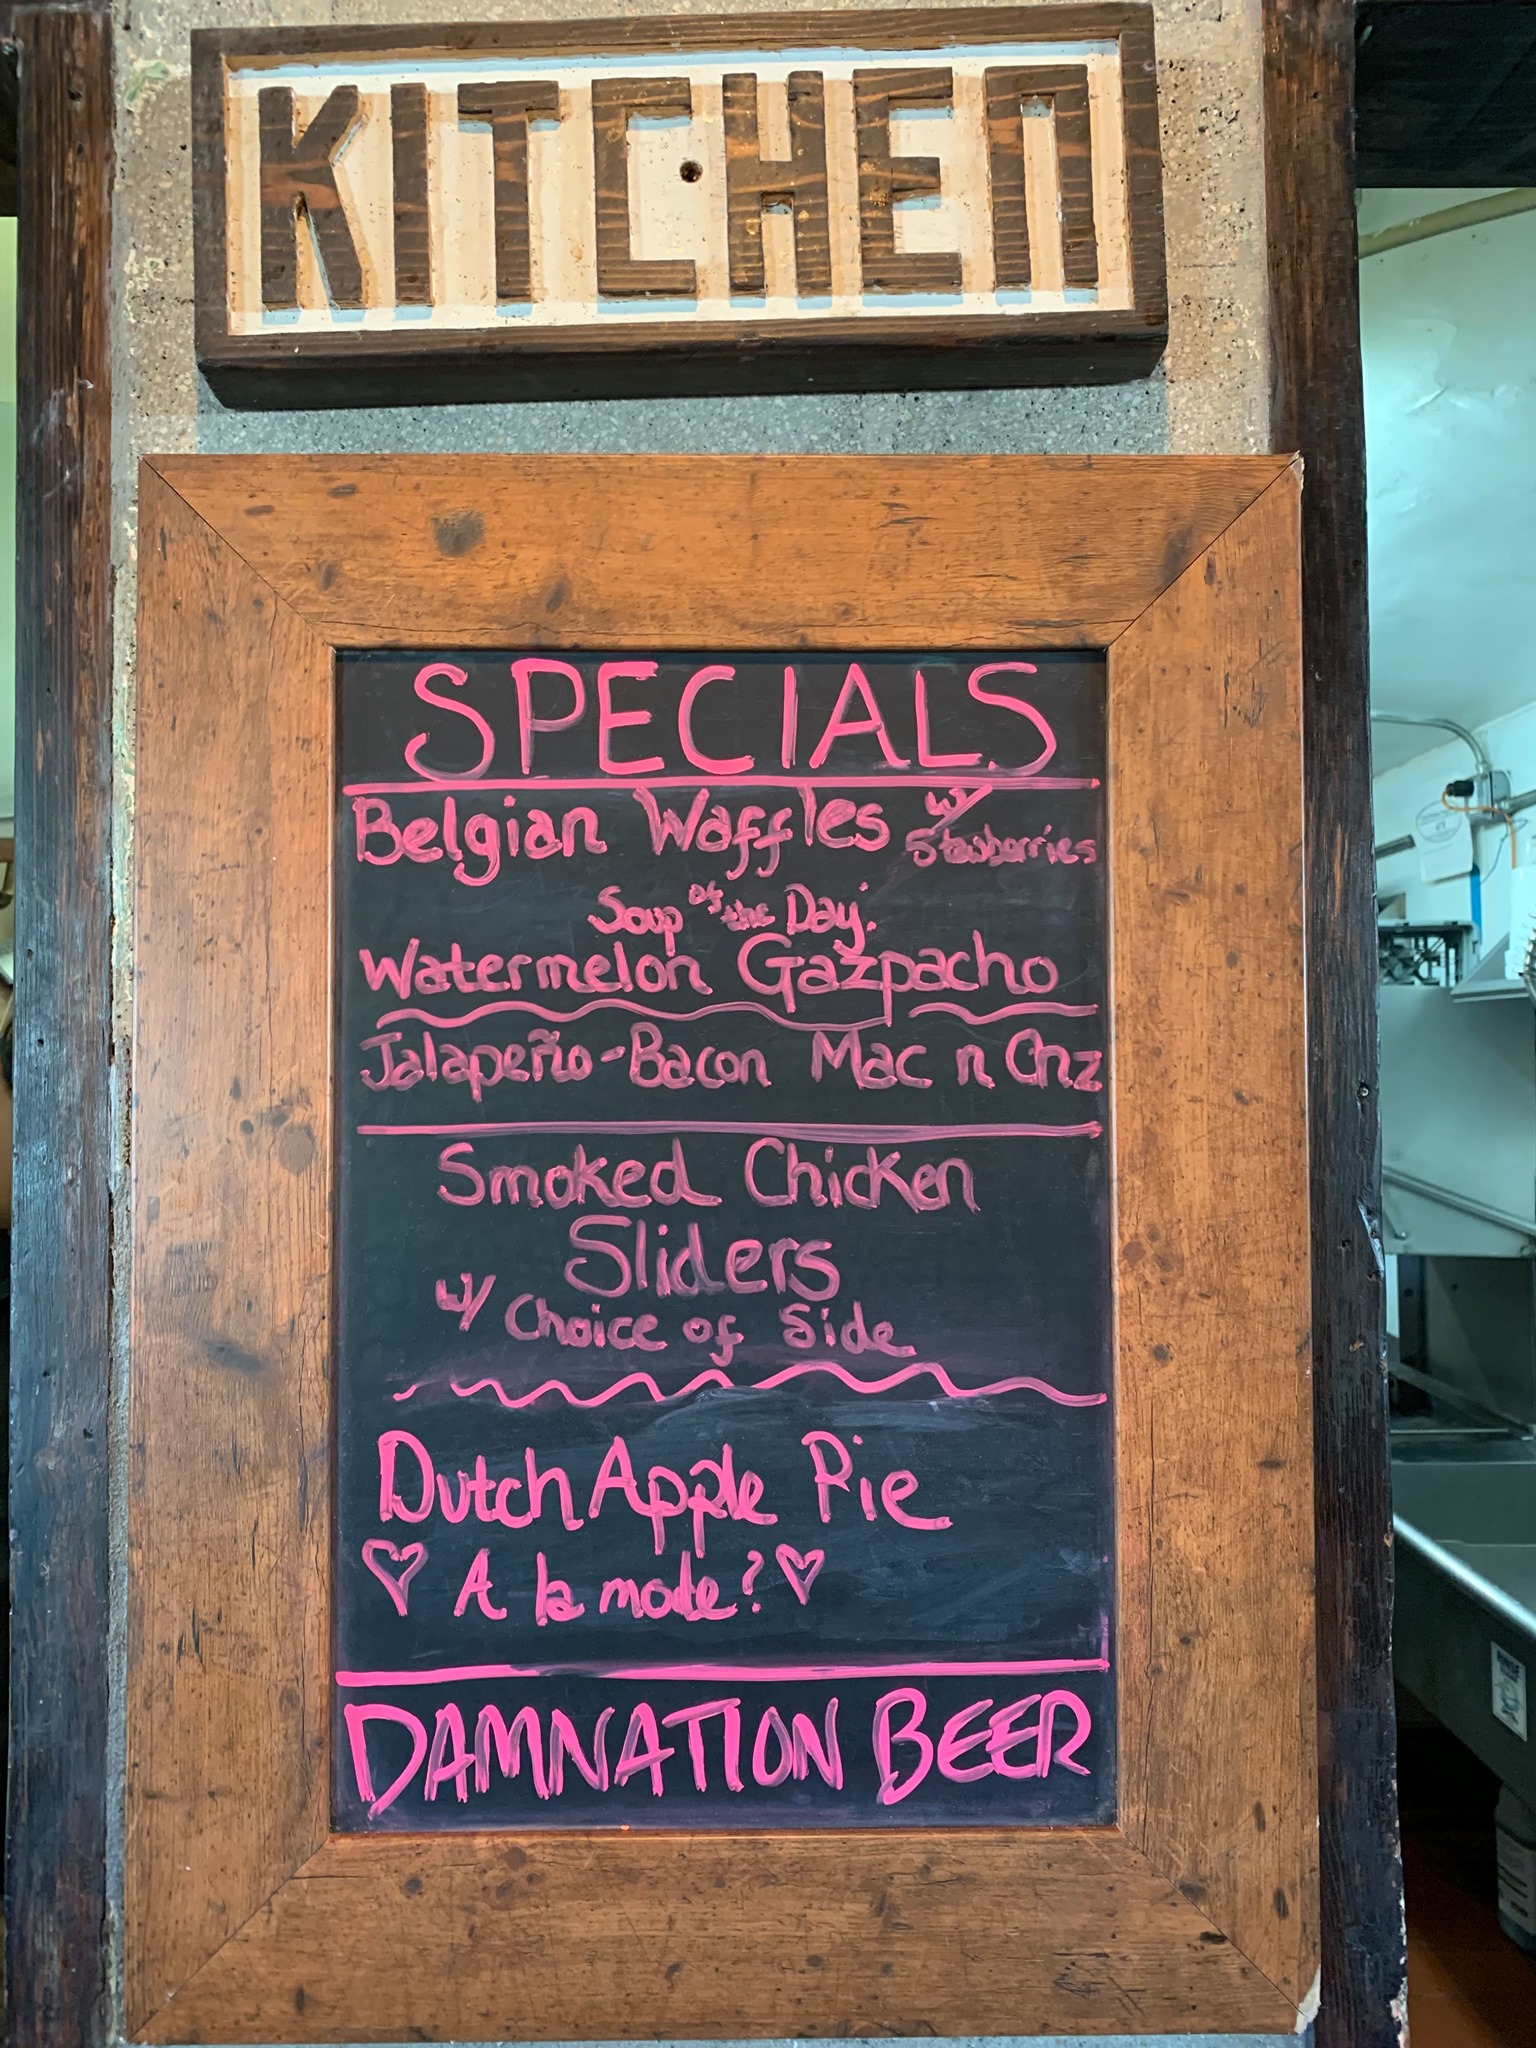 KITCHEN
SPECIALS
Belgian Waffles w/
Stawberries
Soup of the Day:
Watermelon Gazpacho
Jalapeño-Bacon Mac n Chz
Smoked Chicken
Sliders
w/ Choice of Side
Dutch Apple Pie
♡ A la mode? ♡
DAMNATION BEER